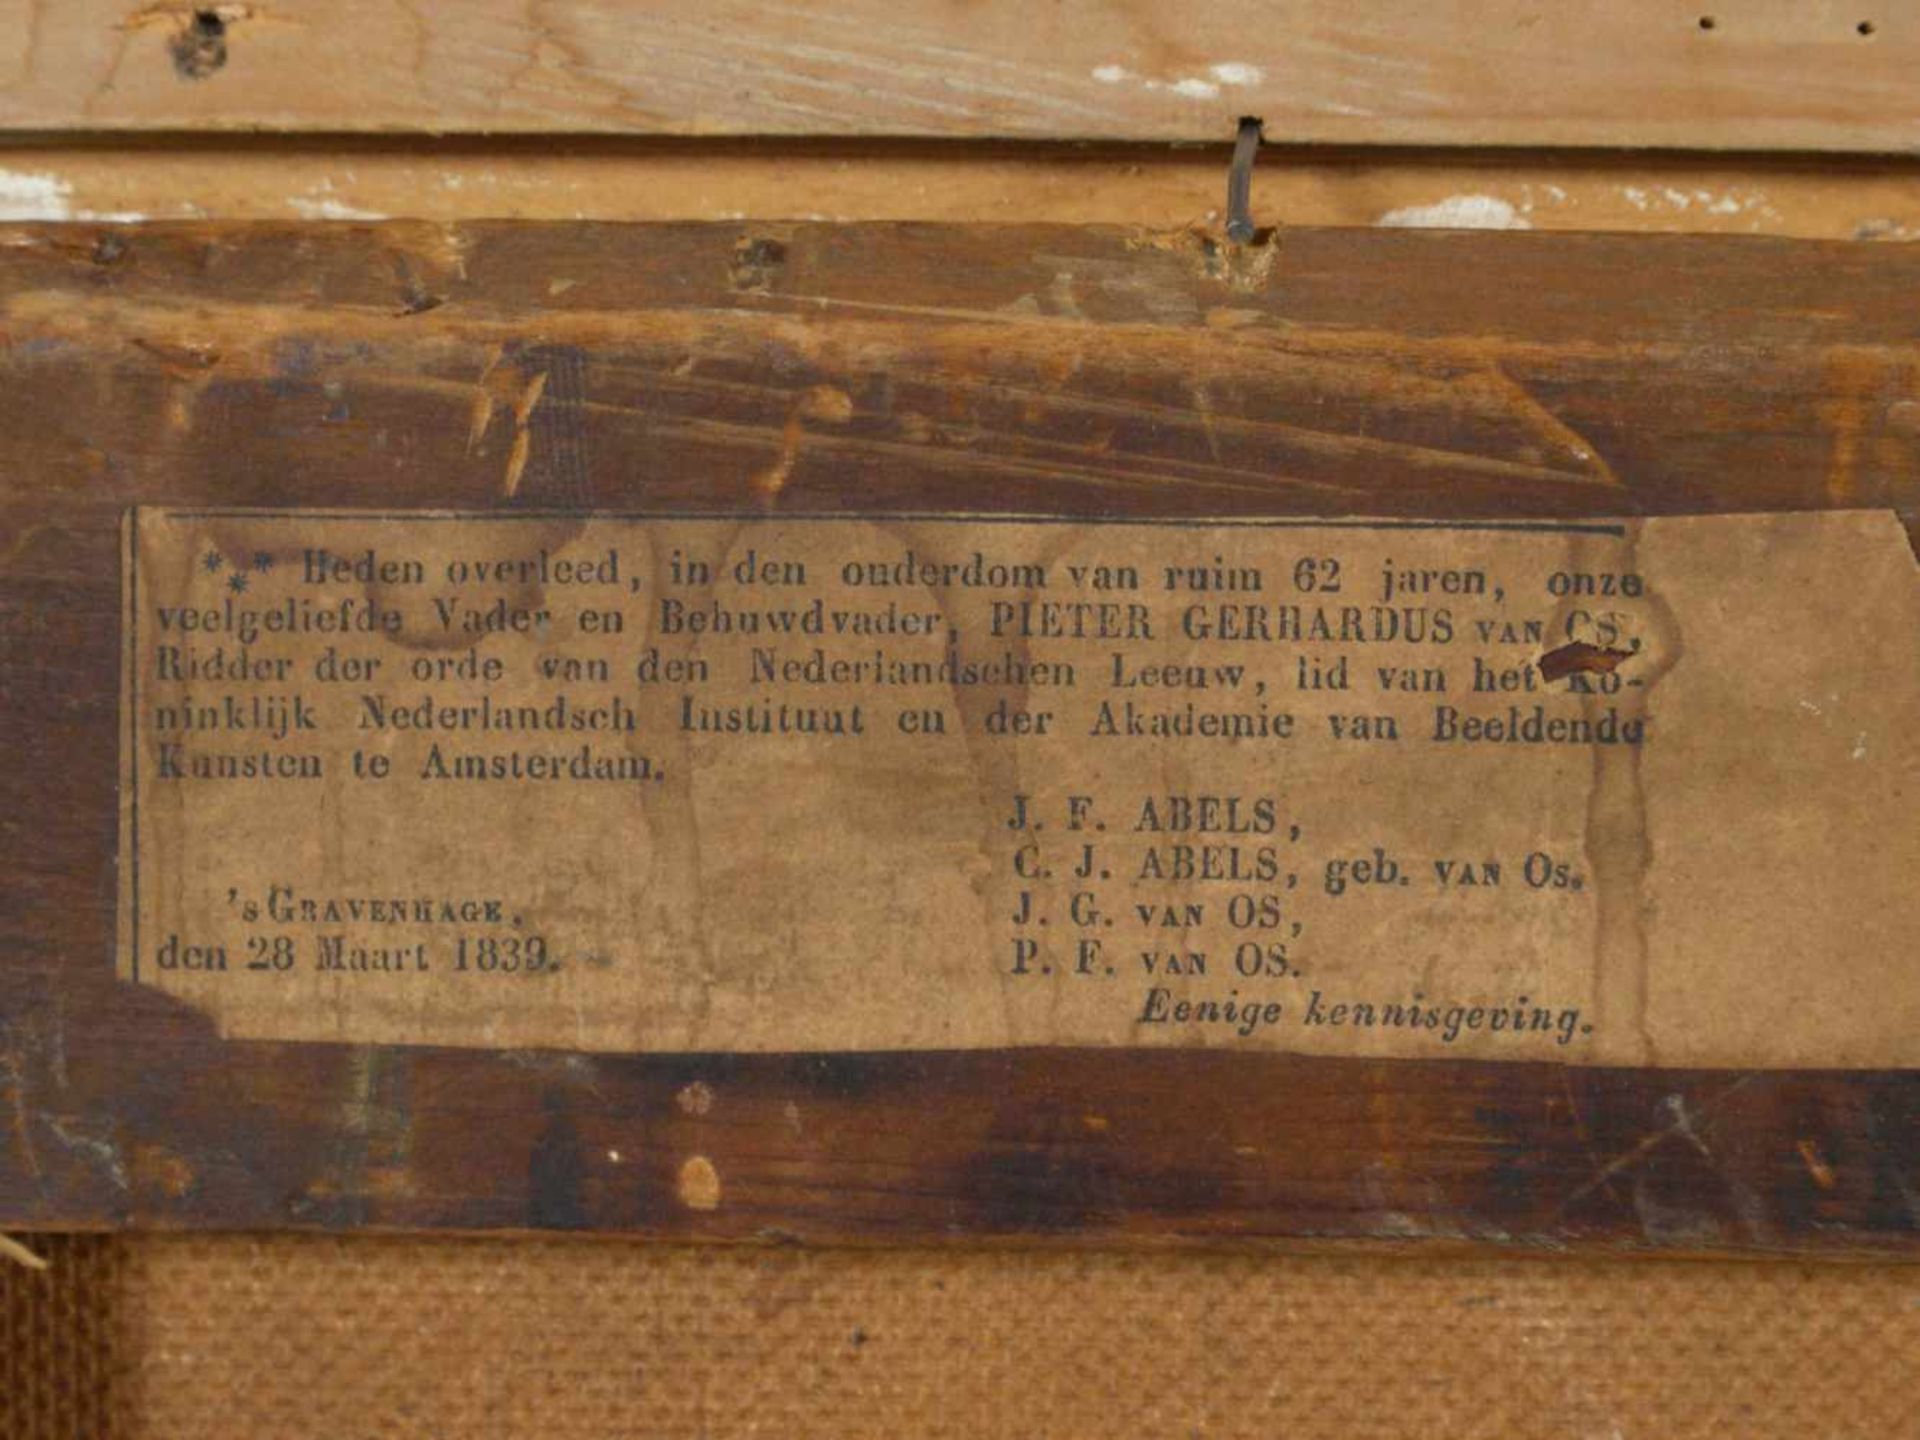 ⁂ Heden overleed, in den ouderdom van ruim 62 jaren, onze
veelgeliefde Vader en Behuwdvader, PIETER GERHARDUS VAN OS,
Ridder der orde van den Nederlandschen Leeuw, lid van het Ko-
ninklijk Nederlandsch Instituut en der Akademie van Beeldende
Kunsten te Amsterdam.
J. F. ABELS,
C. J. ABELS, geb. VAN OS.
'S GRAVENHAGE, J. G. VAN OS,
den 28 Maart 1839. P. F. VAN OS.
Eenige kennisgeving.